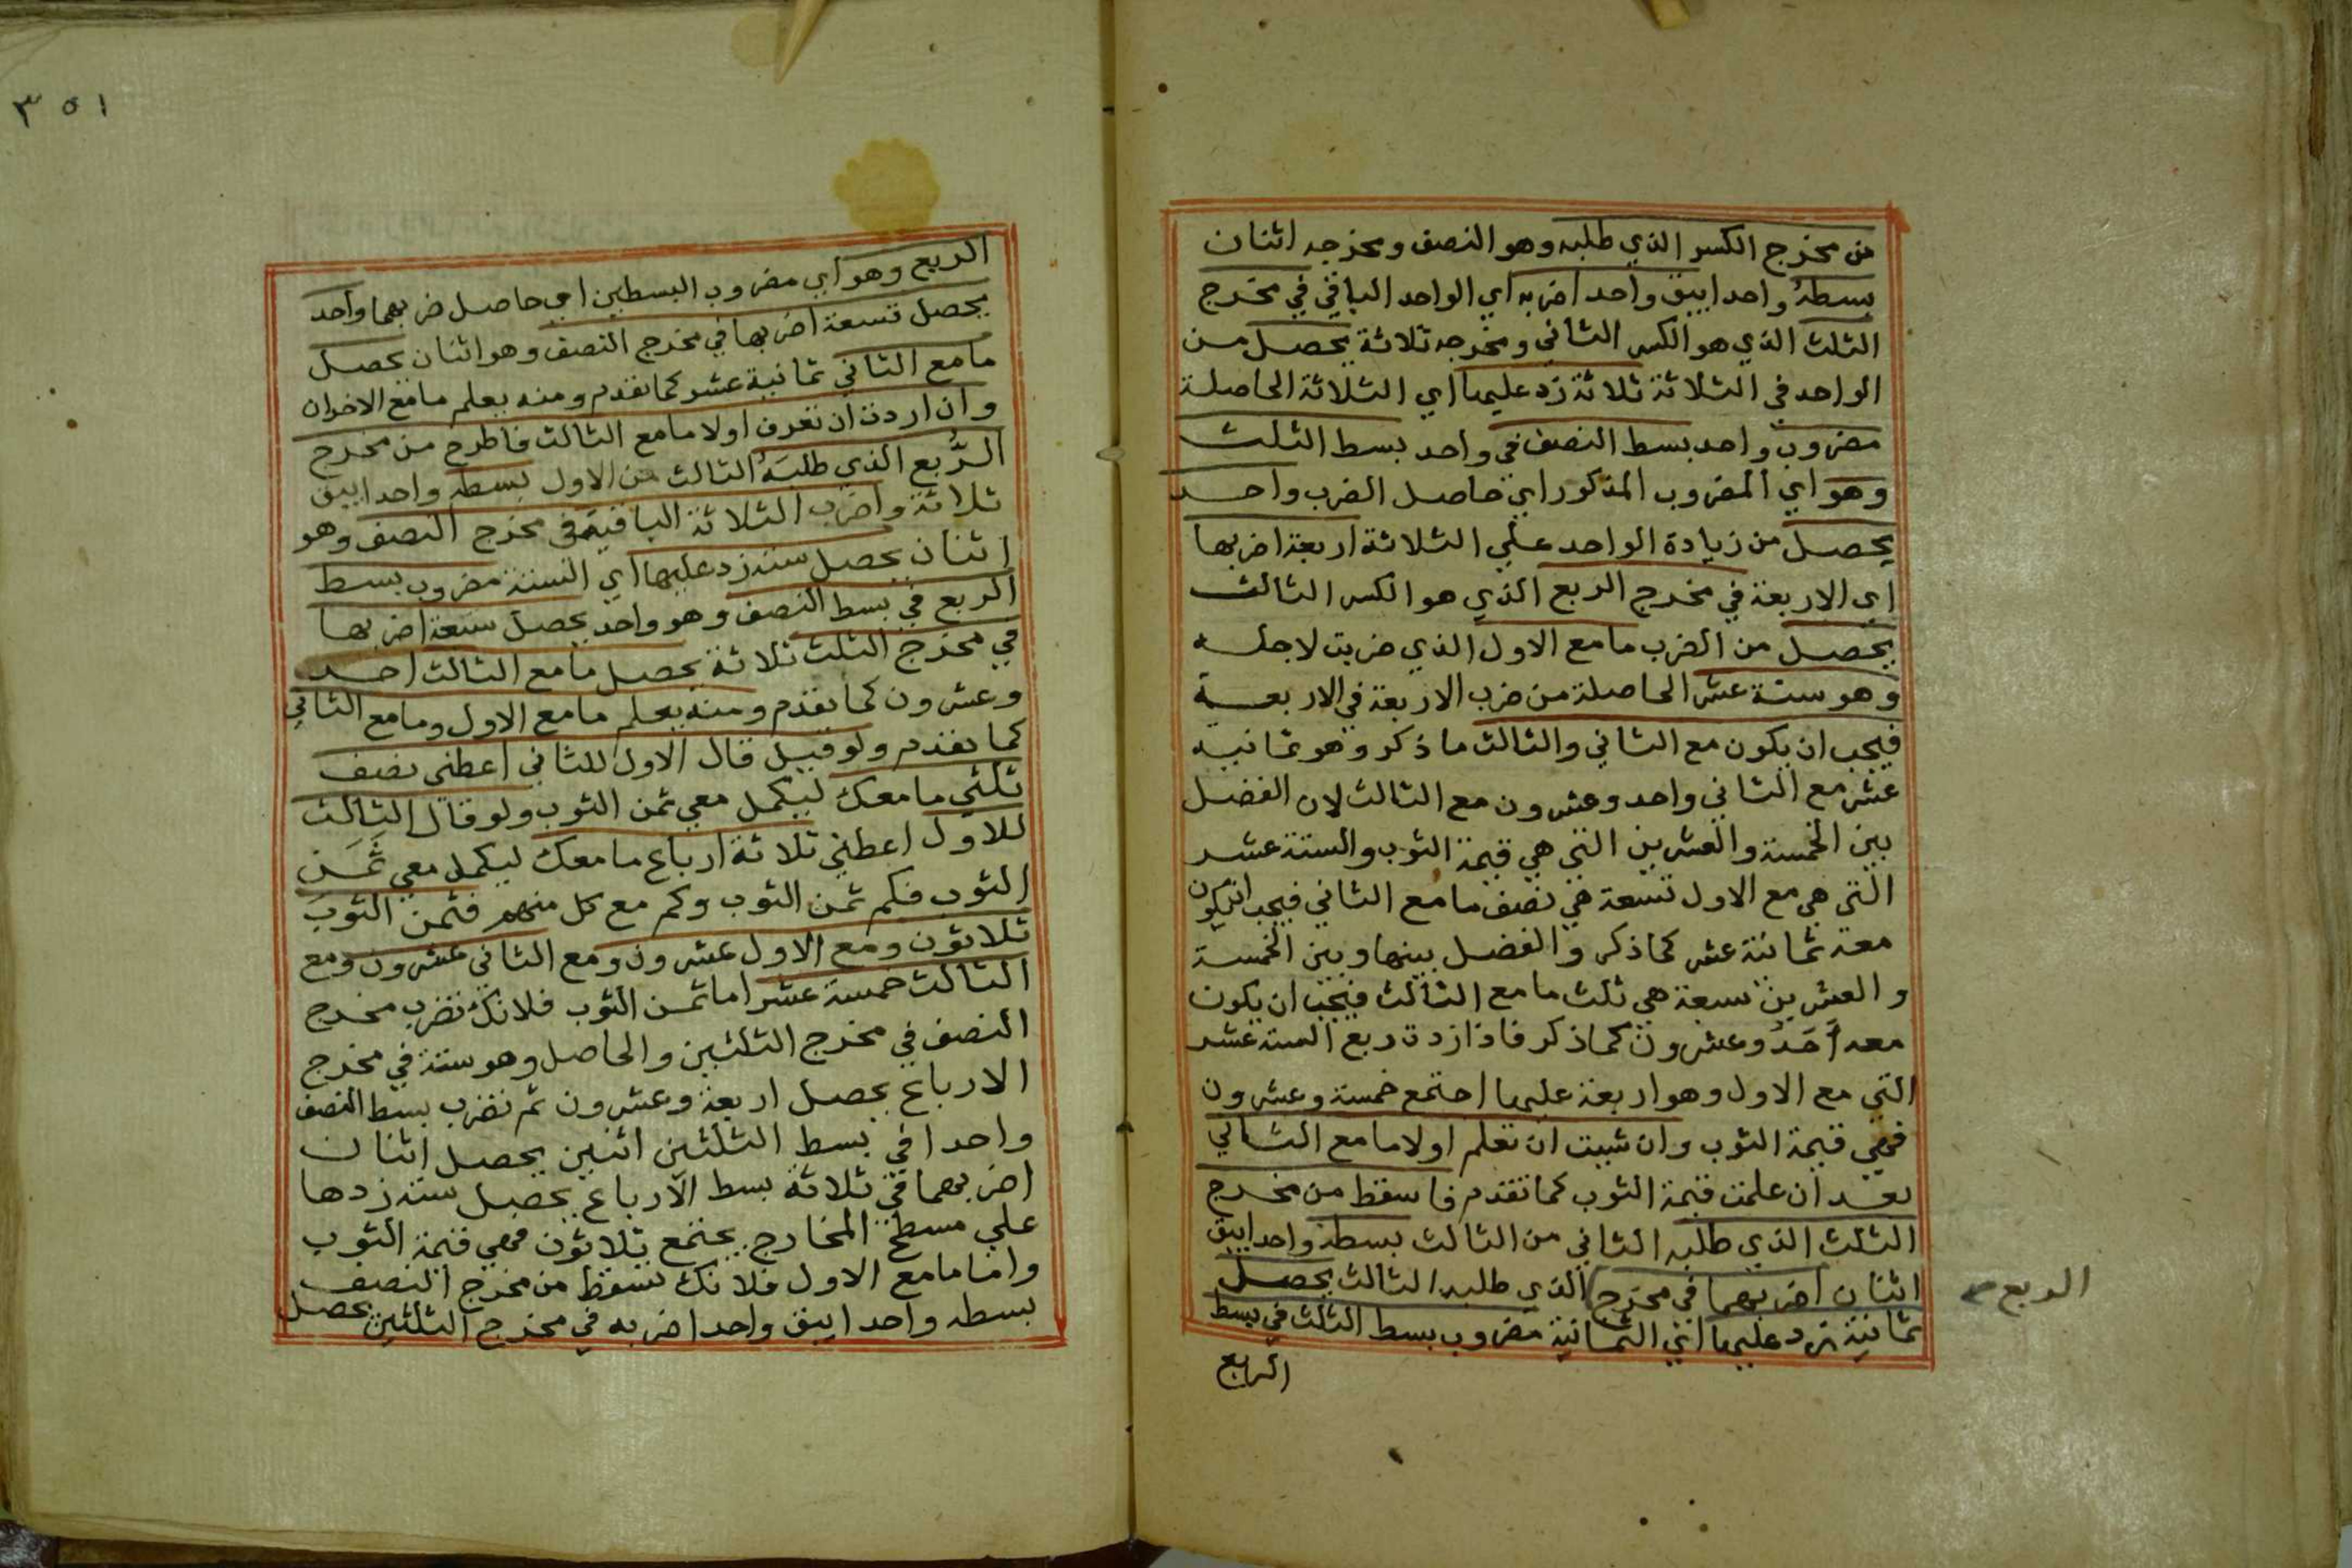 من مخرج الكسر الذي طلبه وهو النصف ومخرجه اثنان
بسطهُ واحدا يبق واحد اضربه اي الواحد الباقي في مخرج
الثلث الذي هو الكسر الثاني ومخرجه ثلاثة يحصل من
الواحد في الثلاثة ثلاثة زد عليها اي الثلاثة الحاصلة
مضروب واحد بسط النصف في واحد بسط الثلث
وهو اي المضروب المذكور اي حاصل الضرب واحد
يحصل من زيادة الواحد علي الثلاثة اربعة اضربها
اي الاربعة في مخرج الربع الذي هو الكسر الثالث
يحصل من الضرب ما مع الاول الذي ضربت لاجله
وهو ستة عشر الحاصلة من ضرب الاربعة في الاربعة
فيجب ان يكون مع الثاني والثالث ما ذكر وهو ثمانيه
عشر مع الثاني واحد وعشرون مع الثالث لان الفضل
بين الخمسة والعشرين التي هي قيمة الثوب والستة عشر
التي هي مع الاول تسعة هي نصف ما مع الثاني فيجب ان يكون
معه ثمانية عشر كما ذكر والفضل بينها وبين الخمسة
والعشرين سبعة هي ثلث ما مع الثالث فيجب ان يكون
معه أَحَدُ وعشرون كما ذكر فاذا زدت ربع الستة عشر
التي مع الاول وهو اربعة عليها اجتمع خمسة وعشرون
فهي قيمة الثوب وان شيت ان تعلم اولا ما مع الثاني
بعد ان علمت قيمة الثوب كما تقدم فاسقط من مخرج
الثلث الذي طلبه الثاني من الثالث بسطه واحدا يبق
اثنان اضربهما في مخرج الذي طلبه الثالث يحصل
ثمانية زد عليها اي الثمانية مضروب بسط الثلث في بسط
الربع
الربع صح
٣٥١
الربع وهو اي مضروب البسطين اي حاصل ضربهما واحد
يحصل تسعة اضربها في مخرج النصف وهو اثنان يحصل
ما مع الثاني ثمانية عشر كما تقدم ومنه يعلم ما مع الاخران
وان اردت ان تعرف اولا ما مع الثالث فاطرح من مخرج
الرُّبع الذي طلبَهُ الثالث من الاول بسطه واحدا يبق
ثلاثة واضرب الثلاثة الباقية في مخرج النصف وهو
اثنان يحصل ستة زد عليها اي الستة مضروب بسط
الربع في بسط النصف وهو واحد يحصل سبعة اضربها
في مخرج الثلث ثلاثة يحصل ما مع الثالث احد
وعشرون كما تقدم ومنه يعلم ما مع الاول وما مع الثاني
كما تقدم ولو قيل قال الاول للثاني اعطني نصف
ثلثي ما معك ليكمل معي ثمن الثوب ولو قال الثالث
للاول اعطني ثلاثة ارباع ما معك ليكمل معي ثَمَن
الثوب فكم ثمن الثوب وكم مع كل منهم فثمن الثوب
ثلاثون ومع الاول عشرون ومع الثاني عشرون ومع
الثالث خمسة عشر اما ثمن الثوب فلانك تضرب مخرج
النصف في مخرج الثلثين والحاصل وهو ستة في مخرج
الارباع يحصل اربعة وعشرون ثم تضرب بسط النصف
واحدا في بسط الثلثين اثنين يحصل اثنان
اضربهما في ثلاثة بسط الارباع يحصل ستة زدها
علي مسطح المخارج يجتمع ثلاثون فهي قيمة الثوب
واما ما مع الاول فلانك تسقط من مخرج النصف
بسطه واحدا يبق واحد اضربه في مخرج الثلثين يحصل